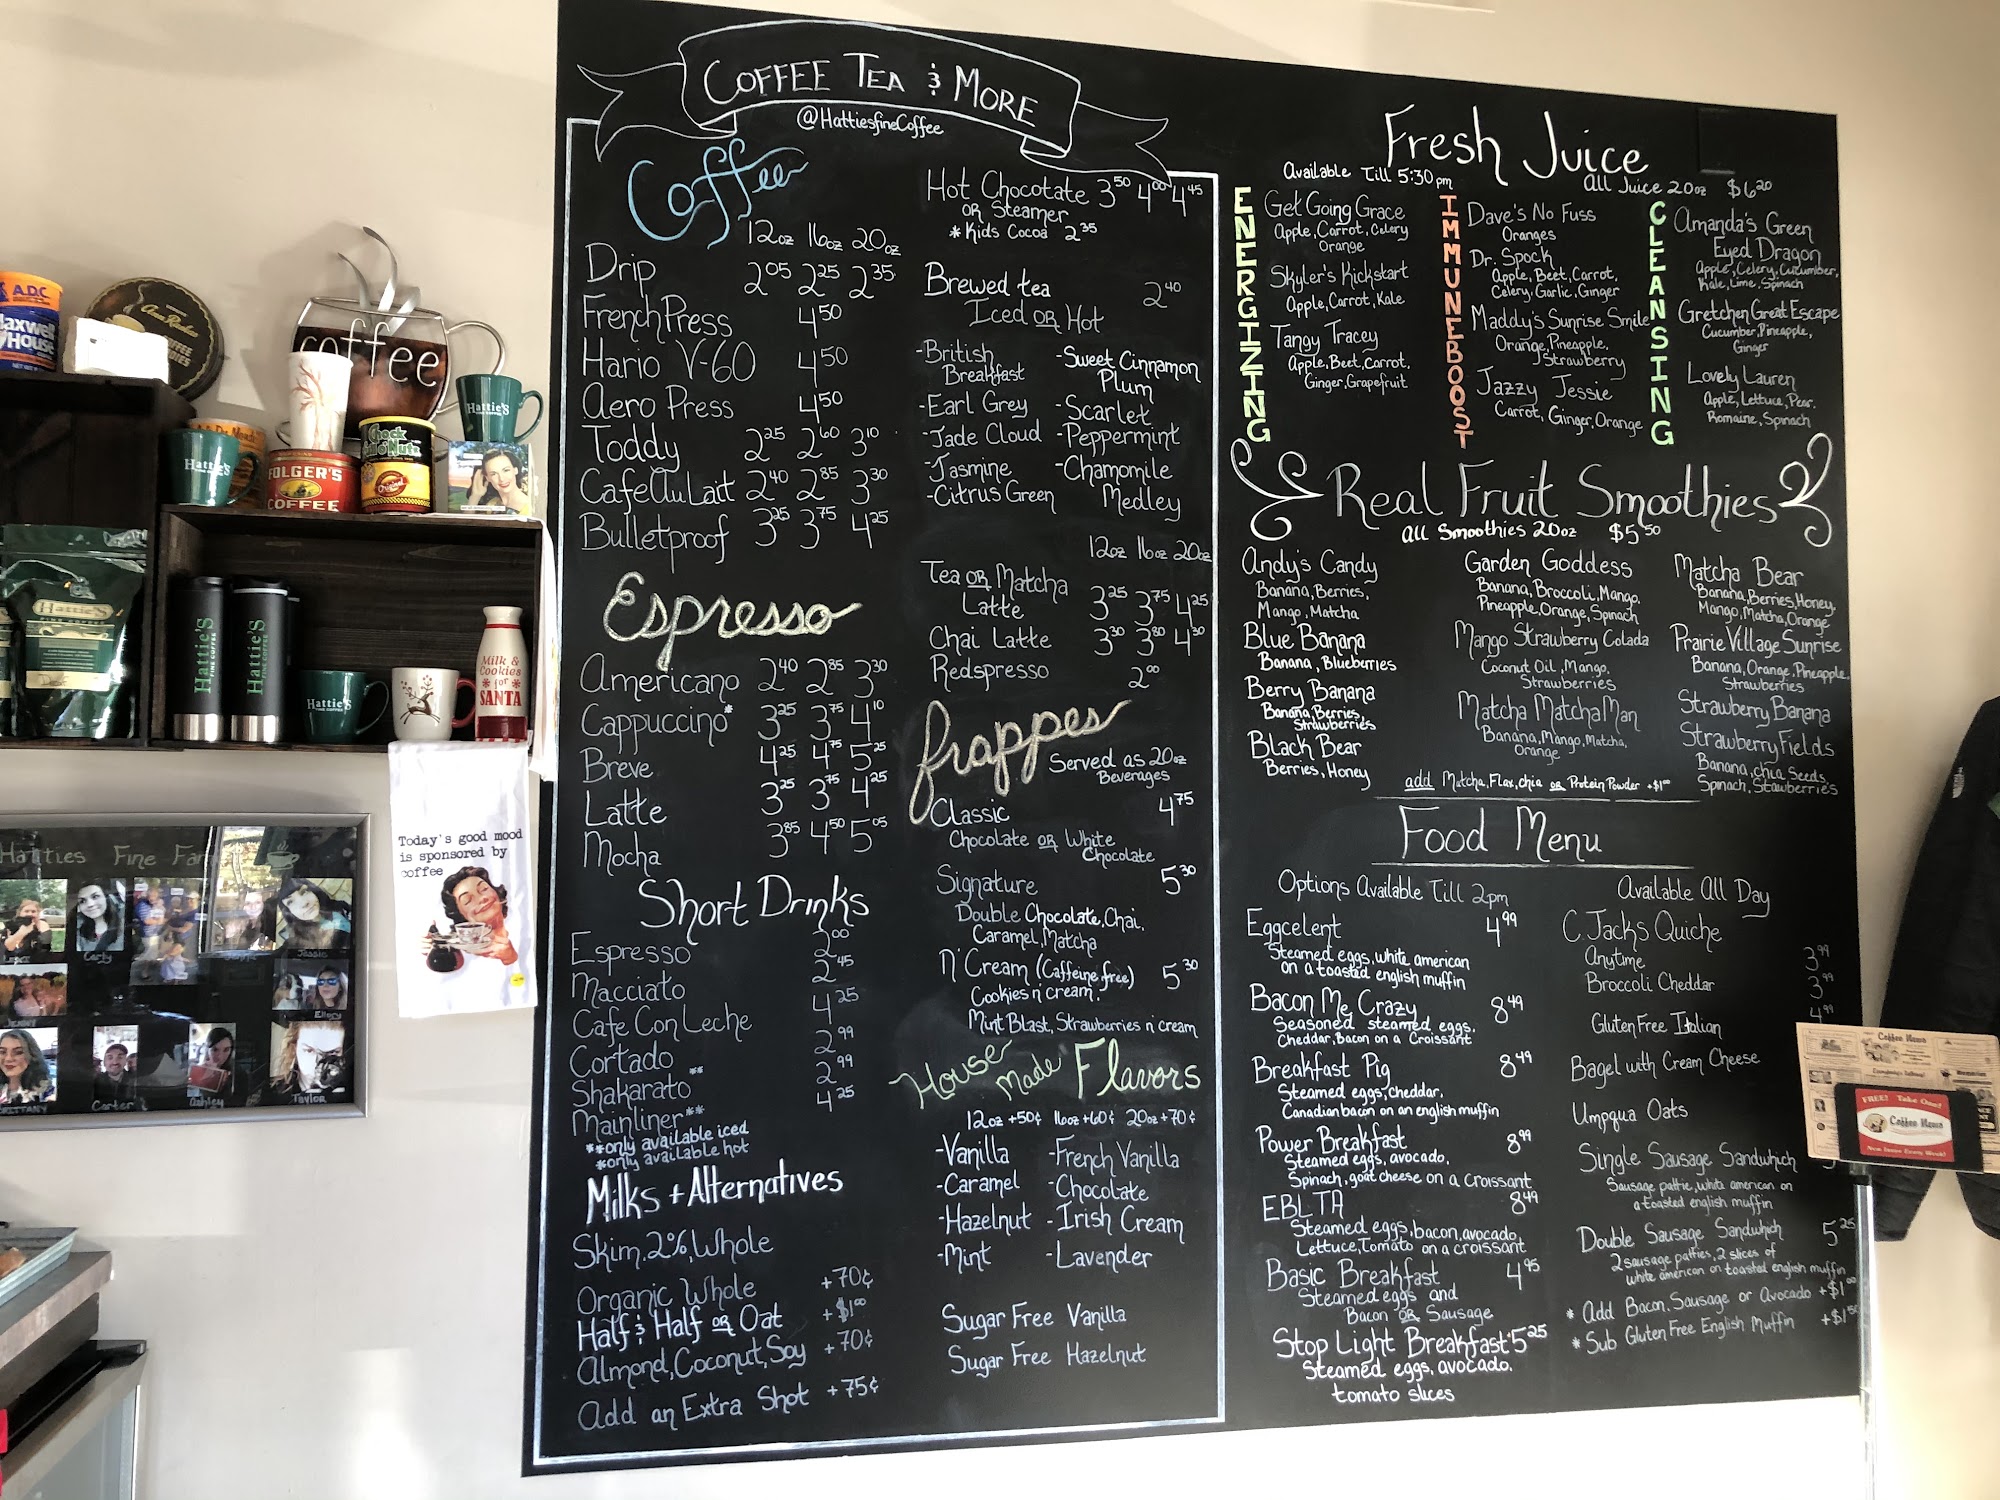 COFFEE TEA & MORE
@HattiesfineCoffee
Coffee
12oz 16oz 20oz
Drip 2.05 2.25 2.35
French Press 4.50
Hario V-60 4.50
Aero Press 4.50
Toddy 2.25 2.60 3.10
Cafe Au Lait 2.40 2.85 3.30
Bulletproof 3.25 3.75 4.25
Espresso
Americano 2.40 2.85 3.30
Cappuccino* 3.25 3.75 4.10
Breve 4.25 4.75 5.25
Latte 3.25 3.75 4.25
Mocha 3.85 4.50 5.05
Short Drinks
Espresso 2.00
Macciato 2.45
Cafe Con Leche 4.25
Cortado 2.99
Shakarato** 2.99
Mainliner** 4.25
**only available iced
*only available hot
Milks + Alternatives
Skim, 2%, Whole
Organic Whole +70¢
Half & Half or Oat +$1.00
Almond, Coconut, Soy +70¢
Add an Extra Shot +75¢
Hot Chocotate 3.50 4.00 4.45
or Steamer
*Kids Cocoa 2.35
Brewed tea 2.40
Iced or Hot
-British Breakfast
-Earl Grey
-Jade Cloud
-Jasmine
-Citrus Green
-Sweet Cinnamon Plum
-Scarlet
-Peppermint
-Chamomile Medley
12oz 16oz 20oz
Tea or Matcha
Latte 3.25 3.75 4.25
Chai Latte 3.30 3.80 4.30
Redspresso 2.00
frappes
Served as 20oz
Beverages
Classic 4.75
Chocolate or White
Chocolate
Signature 5.30
Double Chocolate, Chai,
Caramel, Matcha
N' Cream (Caffeine free) 5.30
Cookies n' cream,
Mint Blast, Strawberries n' cream
House Made Flavors
12oz +50¢ 16oz +60¢ 20oz +70¢
-Vanilla -French Vanilla
-Caramel -Chocolate
-Hazelnut -Irish Cream
-Mint -Lavender
Sugar Free Vanilla
Sugar Free Hazelnut
Fresh Juice
Available Till 5:30pm
All Juice 20oz $6.20
ENERGIZING
Get Going Grace
Apple, Carrot, Celery
Orange
Skyler's Kickstart
Apple, Carrot, Kale
Tangy Tracey
Apple, Beet, Carrot,
Ginger, Grapefruit
IMMUNEBOOST
Dave's No Fuss
Oranges
Dr. Spock
Apple, Beet, Carrot,
Celery, Garlic, Ginger
Maddy's Sunrise Smile
Orange, Pineapple,
Strawberry
Jazzy Jessie
Carrot, Ginger, Orange
CLEANSING
Amanda's Green
Eyed Dragon
Apple, Celery, Cucumber,
Kale, Lime, Spinach
Gretchen Great Escape
Cucumber, Pineapple,
Ginger
Lovely Lauren
Apple, Lettuce, Pear,
Romaine, Spinach
Real Fruit Smoothies
All Smoothies 20oz $5.50
Andy's Candy
Banana, Berries,
Mango, Matcha
Blue Banana
Banana, Blueberries
Berry Banana
Banana, Berries,
Strawberries
Black Bear
Berries, Honey
Garden Goddess
Banana, Broccoli, Mango,
Pineapple, Orange, Spinach
Mango Strawberry Colada
Coconut Oil, Mango,
Strawberries
Matcha MatchaMan
Banana, Mango, Matcha,
Orange
Matcha Bear
Banana, Berries, Honey,
Mango, Matcha, Orange
Prairie Village Sunrise
Banana, Orange, Pineapple,
Strawberries
Strawberry Banana
Strawberry Fields
Banana, chia Seeds,
Spinach, Stawberries
add Matcha, Flax, chia or Protein Powder +$1.00
Food Menu
Options Available Till 2pm
Eggcelent 4.99
Steamed eggs, white american
on a toasted english muffin
Bacon Me Crazy 8.49
Seasoned steamed eggs,
Cheddar, Bacon on a Croissant
Breakfast Pig 8.49
Steamed eggs, cheddar,
Canadian bacon on an english muffin
Power Breakfast 8.99
Steamed eggs, avocado,
Spinach, goat cheese on a croissant
EBLTA 8.49
Steamed eggs, bacon, avocado,
Lettuce, Tomato on a croissant
Basic Breakfast 4.95
Steamed eggs and
Bacon or Sausage
Stop Light Breakfast 5.25
Steamed eggs, avocado,
tomato slices
Available All Day
C Jacks Quiche
Anytime 3.99
Broccoli Cheddar 3.99
Gluten Free Italian 4.99
Bagel with Cream Cheese
Umpqua Oats
Single Sausage Sandwhich
Sausage pattie, white american on
a toasted english muffin
Double Sausage Sandwhich 5.25
2 sausage patties, 2 slices of
white american on toasted english muffin
* Add Bacon, Sausage or Avocado +$1.00
* Sub Gluten Free English Muffin +$1.50
A.D.C.
Maxwell
HOUSE
coffee
Hattie'S
Hattie'S
FOLGER'S
COFFEE
Chock
full o' Nuts
Original
HattieS
FINE COFFEE
HattieS
FINE COFFEE
HattieS
FINE COFFEE
HattieS
Milk &
Cookies
for
SANTA
Today's good mood
is sponsored by
coffee
Hatties Fine Fam
Carly
Jassie
Ellory
Jenny
Brittany
Carter
Ashley
Taylor
Coffee News
FREE! Take One!
Coffee News
New Issue Every Week!